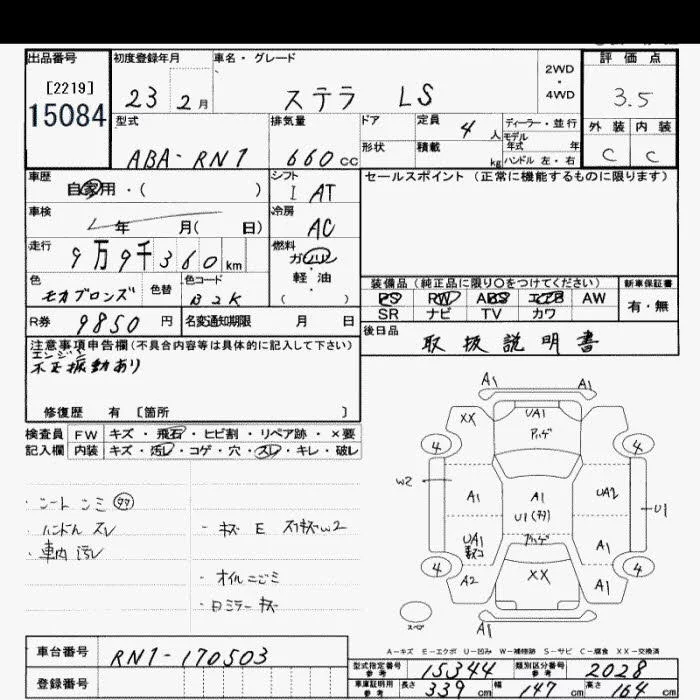 出品番号 初度登録年月 車名・グレード 評価点
[2219]
15084
23 2月 ステラ LS 2WD・4WD 3.5
型式 排気量 ドア 定員 4人 ディーラー・並行 外装 内装
モデル年式 年
ABA-RN1 660cc 形状 積載 kg ハンドル 左・右 C C
車歴 シフト セールスポイント (正常に機能するものに限ります)
自家用・( ) I AT
車検 冷房
年 月( 日) AC
走行 燃料
9万9千360km ガソリン・軽油
( )
装備品(純正品に限り○をつけてください) 新車保証書
色 色替 色コード PS RW ABS エアB AW 有・無
モカブロンズ B2K SR ナビ TV カワ
R券 9850円 名変通知期限 月 日 後日品
取扱説明書
注意事項申告欄(不具合内容等は具体的に記入して下さい)
エンジン
不正振動あり
修復歴 有 [箇所 ]
検査員 FW キズ・飛石・ヒビ割・リペア跡・×要
記入欄 内装 キズ・汚レ・コゲ・穴・スレ・キレ・破レ
ハンドル スレ
車内 汚レ
・キズ E
・オイルニジミ
・ロミラー キズ
A1 A1
XX UA1
アゲ
4 4
W2
A1 A1 UA2
U1
U1
UA1 アゲ A1
4 4
A2 XX A1
スペア
A1
A-キズ E-エクボ U-凹み W-補修跡 S-サビ C-腐食 XX-交換済
車台番号 RN1-170503
登録番号
型式指定番号 参考 15344 類別区分番号 参考 2028
車庫証明用 参考 長さ 339cm 幅 147cm 高さ 164cm